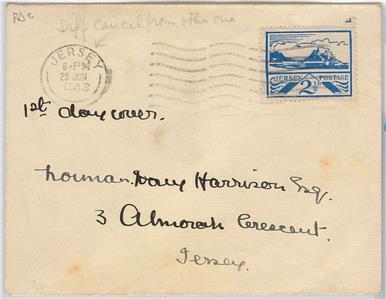 FDC
diff cancel from other one
JERSEY
6-PM
29 JUN
1943
JERSEY POSTAGE
2½D
1st day cover.
Norman Harrison Esq.
3 Almorah Crescent.
Jersey.